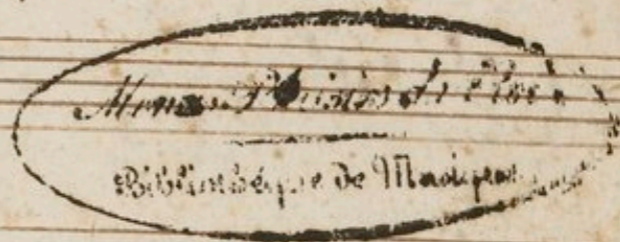 Menus Plaisirs du Roi.
Bibliothèque de Musique